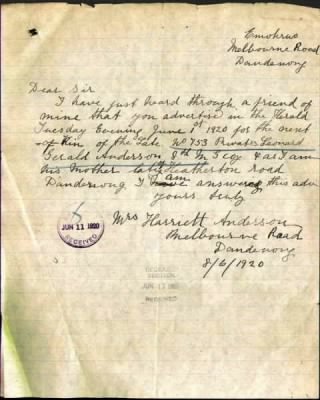 Emohruo
Melbourne Road
Dandenong
Dear Sir
I have just heard through a friend of
mine that you advertise in the Herald
Tuesday Evening June 1st 1920 for the next
of Kin of the late No 753 Private Leonard
Gerald Anderson 8th M G Coy & as I am
his Mother late Heatherton road
Dandenong I am answering this adv
yours truly
Mrs Harriett Anderson
Melbourne Road
Dandenong
8/6/1920
JUN 11 1920
RECEIVED
JUN 11 1920
RECEIVED